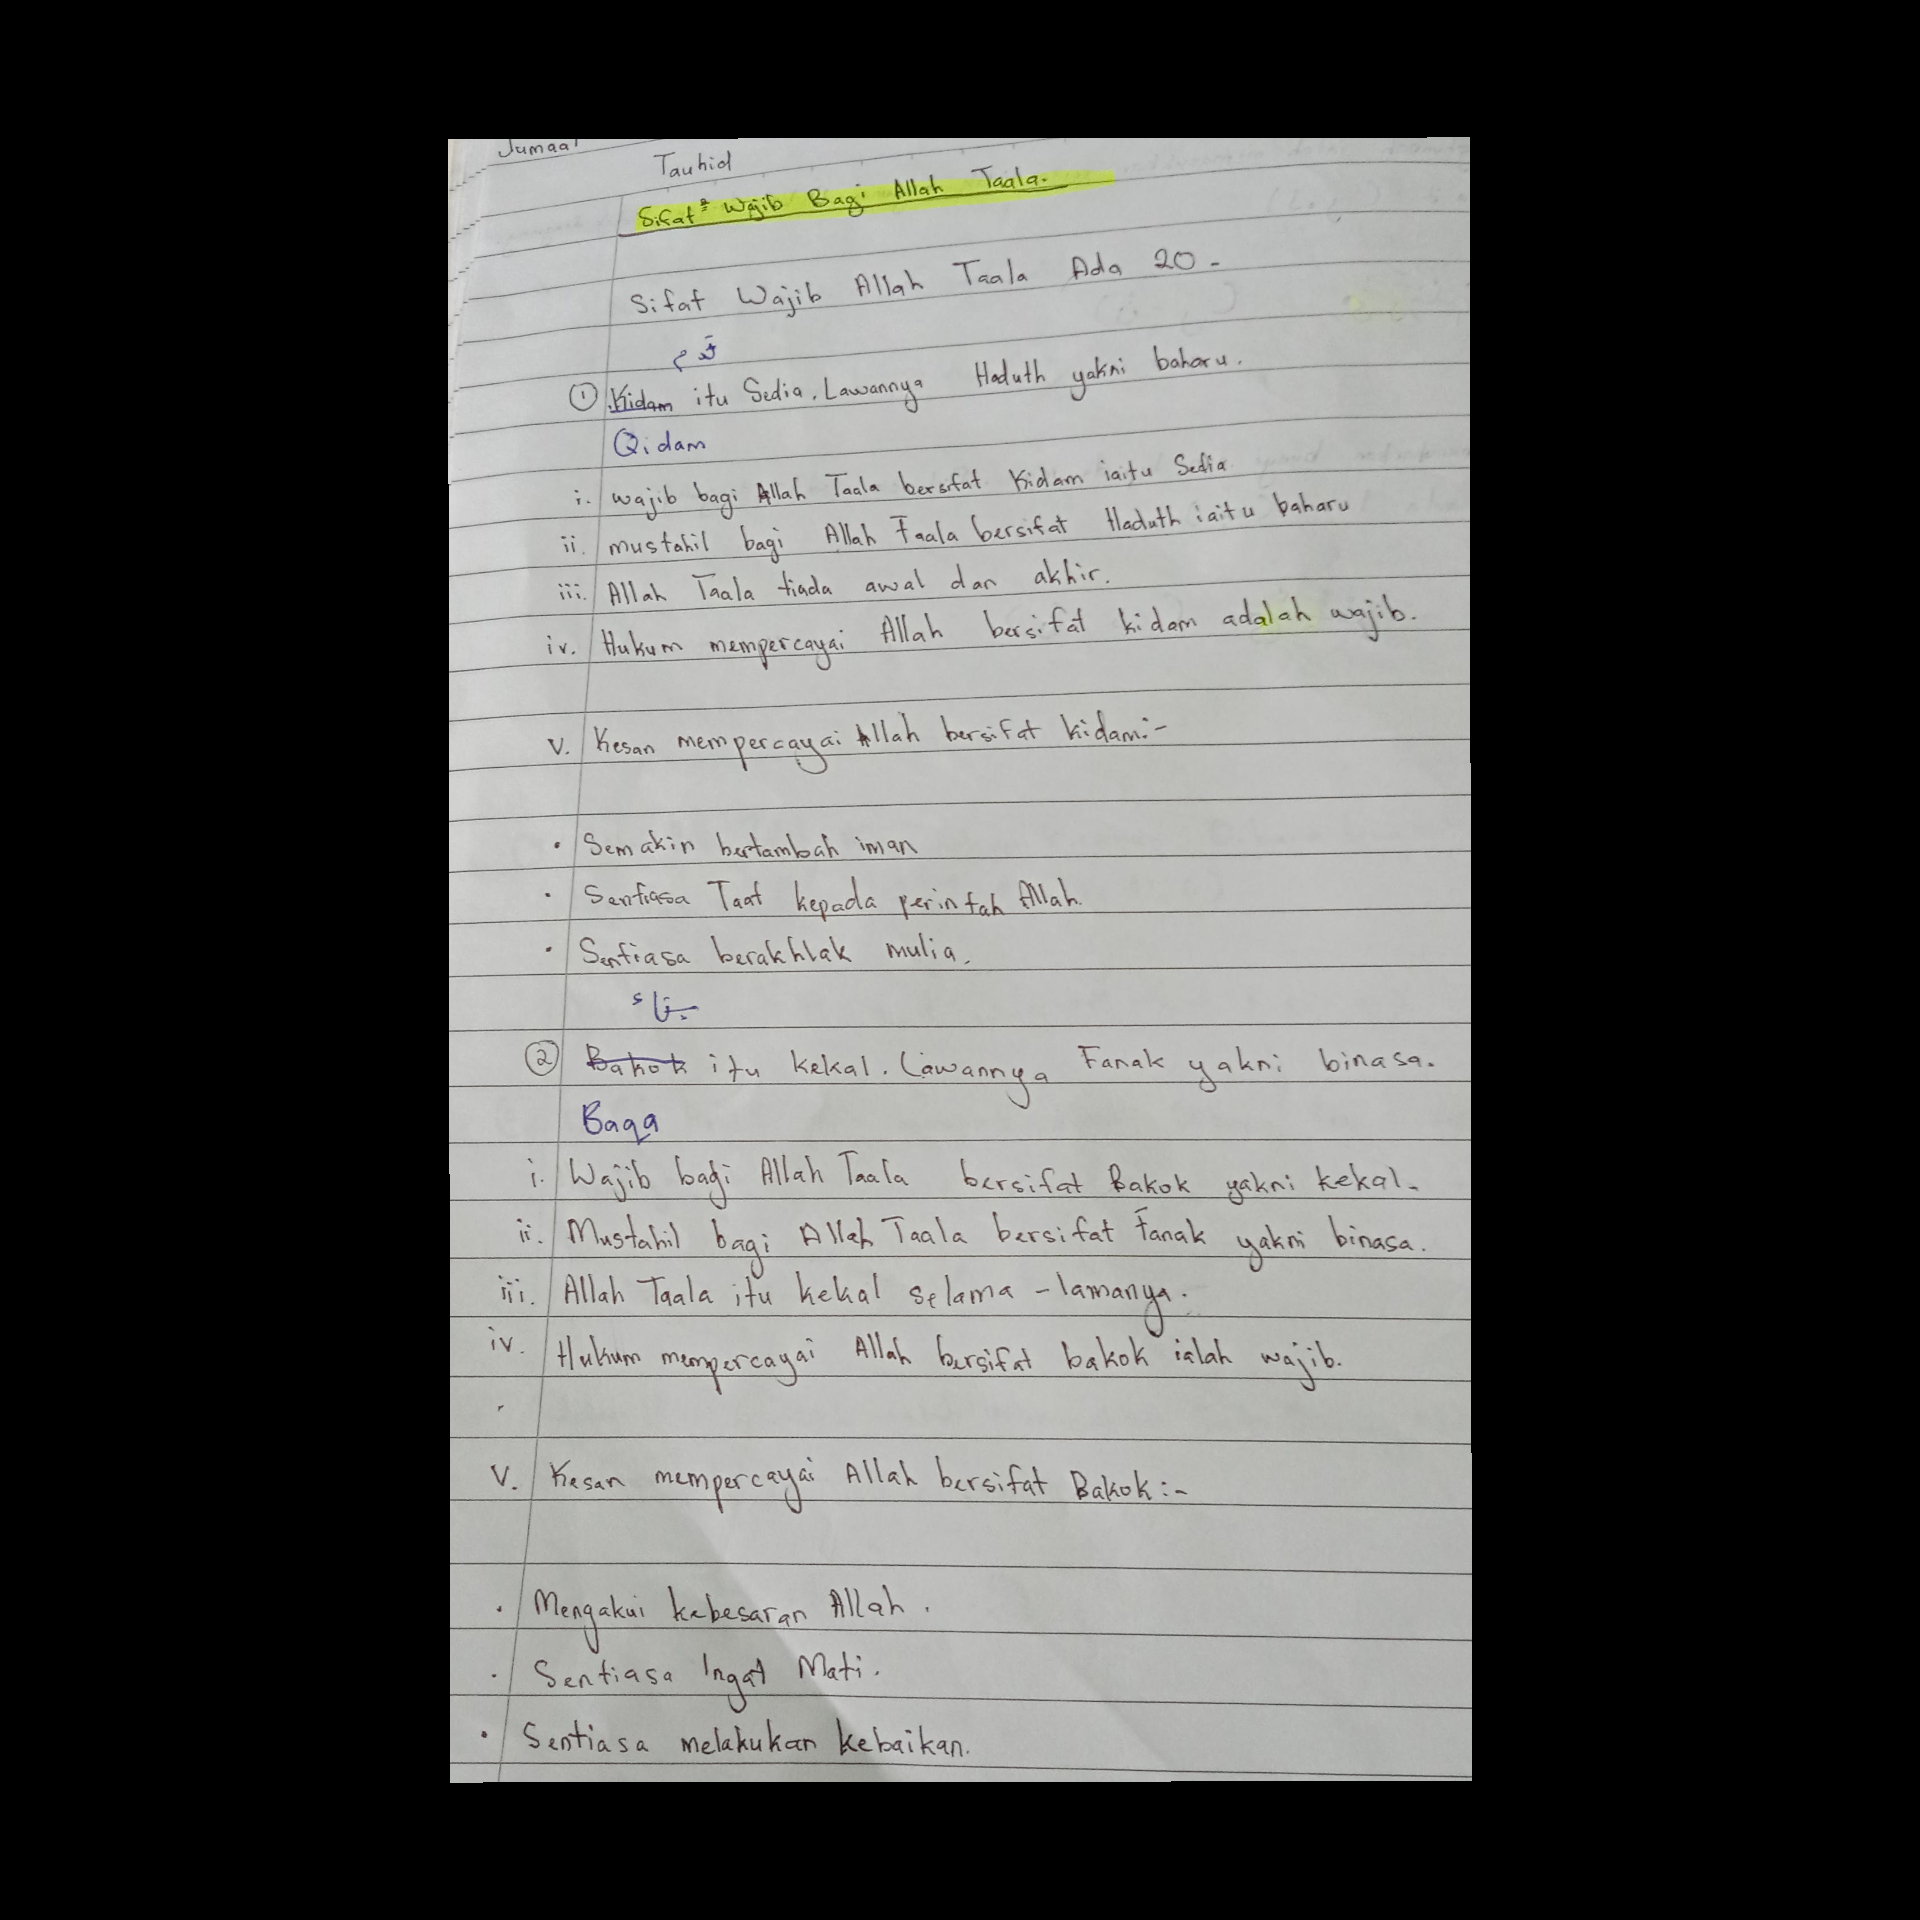 Jumaat
Tauhid
Sifat² Wajib Bagi Allah Taala.
Sifat Wajib Allah Taala Ada 20 -
قدم
① Kidam itu Sedia. Lawannya Haduth yakni baharu.
Qidam
i. wajib bagi Allah Taala bersifat Kidam iaitu Sedia
ii. mustahil bagi Allah Taala bersifat Haduth iaitu baharu
iii. Allah Taala tiada awal dan akhir.
iv. Hukum mempercayai Allah bersifat kidam adalah wajib.
V. Kesan mempercayai Allah bersifat kidam:-
• Semakin bertambah iman
• Sentiasa Taat kepada perintah Allah.
• Sentiasa berakhlak mulia.
بقاء
② Bakok itu kekal. Lawannya Fanak yakni binasa.
Baqa
i. Wajib bagi Allah Taala bersifat Bakok yakni kekal.
ii. Mustahil bagi Allah Taala bersifat Fanak yakni binasa.
iii. Allah Taala itu kekal selama-lamanya.
iv. Hukum mempercayai Allah bersifat bakok ialah wajib.
V. Kesan mempercayai Allah bersifat Bakok:-
• Mengakui kebesaran Allah.
• Sentiasa Ingat Mati.
• Sentiasa melakukan kebaikan.